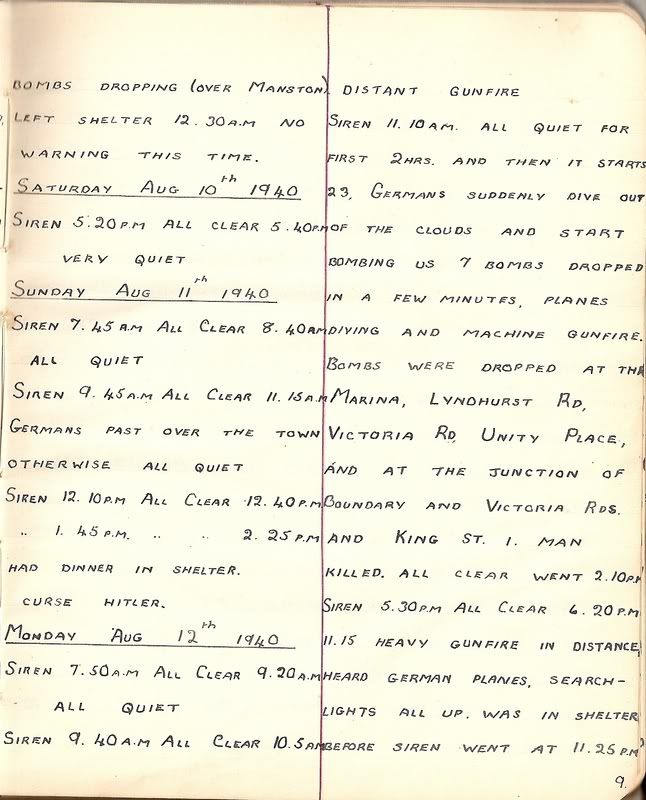 BOMBS DROPPING (OVER MANSTON).
LEFT SHELTER 12.30A.M NO
WARNING THIS TIME.
SATURDAY AUG 10th 1940
SIREN 5.20P.M ALL CLEAR 5.40P.M
VERY QUIET
SUNDAY AUG 11th 1940
SIREN 7.45A.M ALL CLEAR 8.40AM
ALL QUIET
SIREN 9.45A.M ALL CLEAR 11.15A.M
GERMANS PAST OVER THE TOWN
OTHERWISE ALL QUIET
SIREN 12.10P.M ALL CLEAR 12.40P.M
" 1.45P.M. " " 2.25P.M
HAD DINNER IN SHELTER.
CURSE HITLER.
MONDAY AUG 12th 1940
SIREN 7.50A.M ALL CLEAR 9.20A.M
ALL QUIET
SIREN 9.40A.M ALL CLEAR 10.5AM
DISTANT GUNFIRE
SIREN 11.10AM. ALL QUIET FOR
FIRST 2HRS. AND THEN IT STARTS
23, GERMANS SUDDENLY DIVE OUT
OF THE CLOUDS AND START
BOMBING US 7 BOMBS DROPPED
IN A FEW MINUTES, PLANES
DIVING AND MACHINE GUNFIRE.
BOMBS WERE DROPPED AT THE
MARINA, LYNDHURST RD,
VICTORIA RD, UNITY PLACE,
AND AT THE JUNCTION OF
BOUNDARY AND VICTORIA RDS.
AND KING ST. 1. MAN
KILLED. ALL CLEAR WENT 2.10PM
SIREN 5.30P.M ALL CLEAR 6.20P.M
11.15 HEAVY GUNFIRE IN DISTANCE,
HEARD GERMAN PLANES, SEARCH-
LIGHTS ALL UP. WAS IN SHELTER
BEFORE SIREN WENT AT 11.25P.M
9.